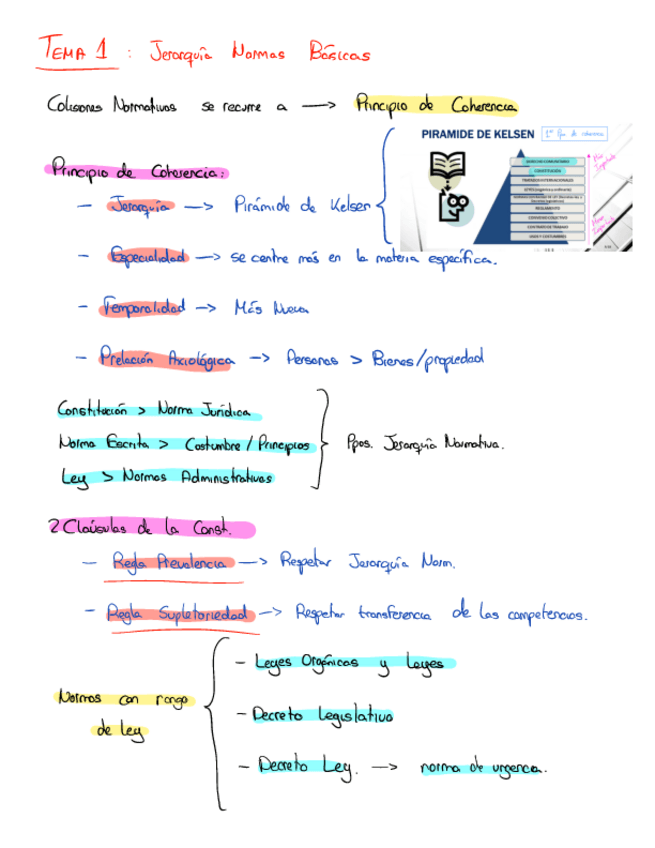 TEMA 1 : Jerarquía Normas Básicas
Colisiones Normativas se recurre a —> Principio de Coherencia
PIRAMIDE DE KELSEN
Principio de Coherencia:
DERECHO COMUNITARIO
CONSTITUCIÓN
TRATADOS INTERNACIONALES
REGLAMENTO
CONVENIO COLECTIVO
CONTRATO DE TRABAJO
USOS Y COSTUMBRES
Más Importante
Menos Importante
- Jerarquía —> Pirámide de Kelsen
- Especialidad —> se centre más en la materia específica.
- Temporalidad —> Más Nueva
- Prelación Axiológica —> Personas > Bienes/propiedad
Constitución > Norma Jurídica
Norma Escrita > Costumbre / Principios
Ppos. Jerarquía Normativa.
Ley > Normas Administrativas
2 Claúsulas de la Const.
- Regla Prevalencia —> Respetar Jerarquía Norm.
- Regla Supletoriedad —> Respetar transferencia de las competencias.
Normas con rango de Ley
- Leyes Orgánicas y Leyes
- Decreto Legislativo
- Decreto Ley. —> norma de urgencia.